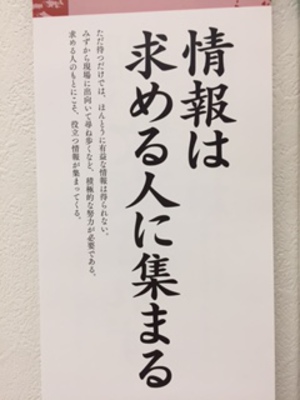 情報は
求める人に集まる
ただ待つだけでは、ほんとうに有益な情報は得られない。
みずから現場に出向いて尋ね歩くなど、積極的な努力が必要である。
求める人のもとにこそ、役立つ情報が集まってくる。